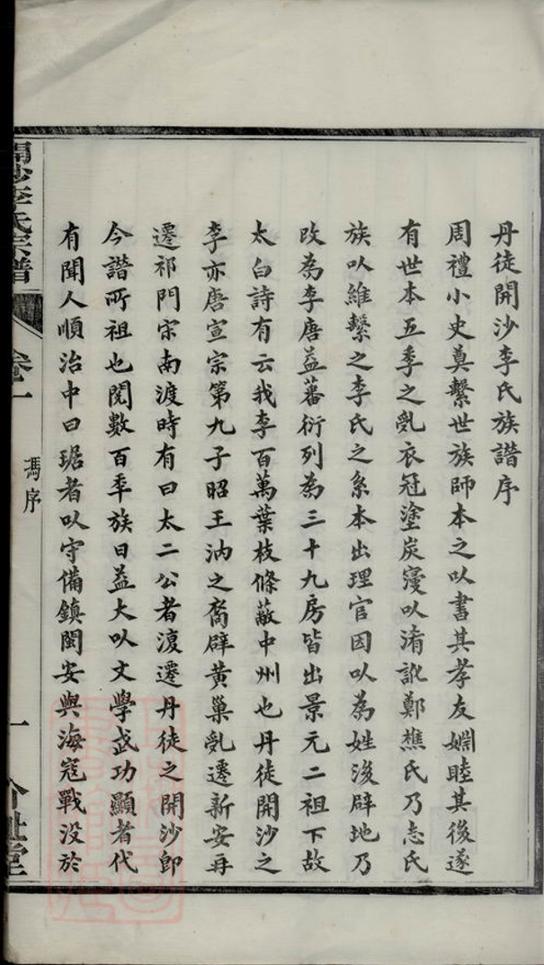 丹徒開沙李氏族譜序
周禮小史奠繫世族師本之以書其孝友婣睦其後遂
有世本五季之亂衣冠塗炭寖以淆訛鄭樵氏乃志氏
族以維繫之李氏之系本出理官因以為姓後辟地乃
改為李唐益蕃衍列為三十九房皆出景元二祖下故
太白詩有云我李百萬葉枝條蔽中州也丹徒開沙之
李亦唐宣宗第九子昭王汭之裔辟黃巢亂遷新安再
遷祁門宋南渡時有曰太二公者復遷丹徒之開沙即
今譜所祖也閱數百年族日益大以文學武功顯者代
有聞人順治中曰琚者以守備鎮閩安與海寇戰没於
開沙李氏宗譜
卷一
馮序
一